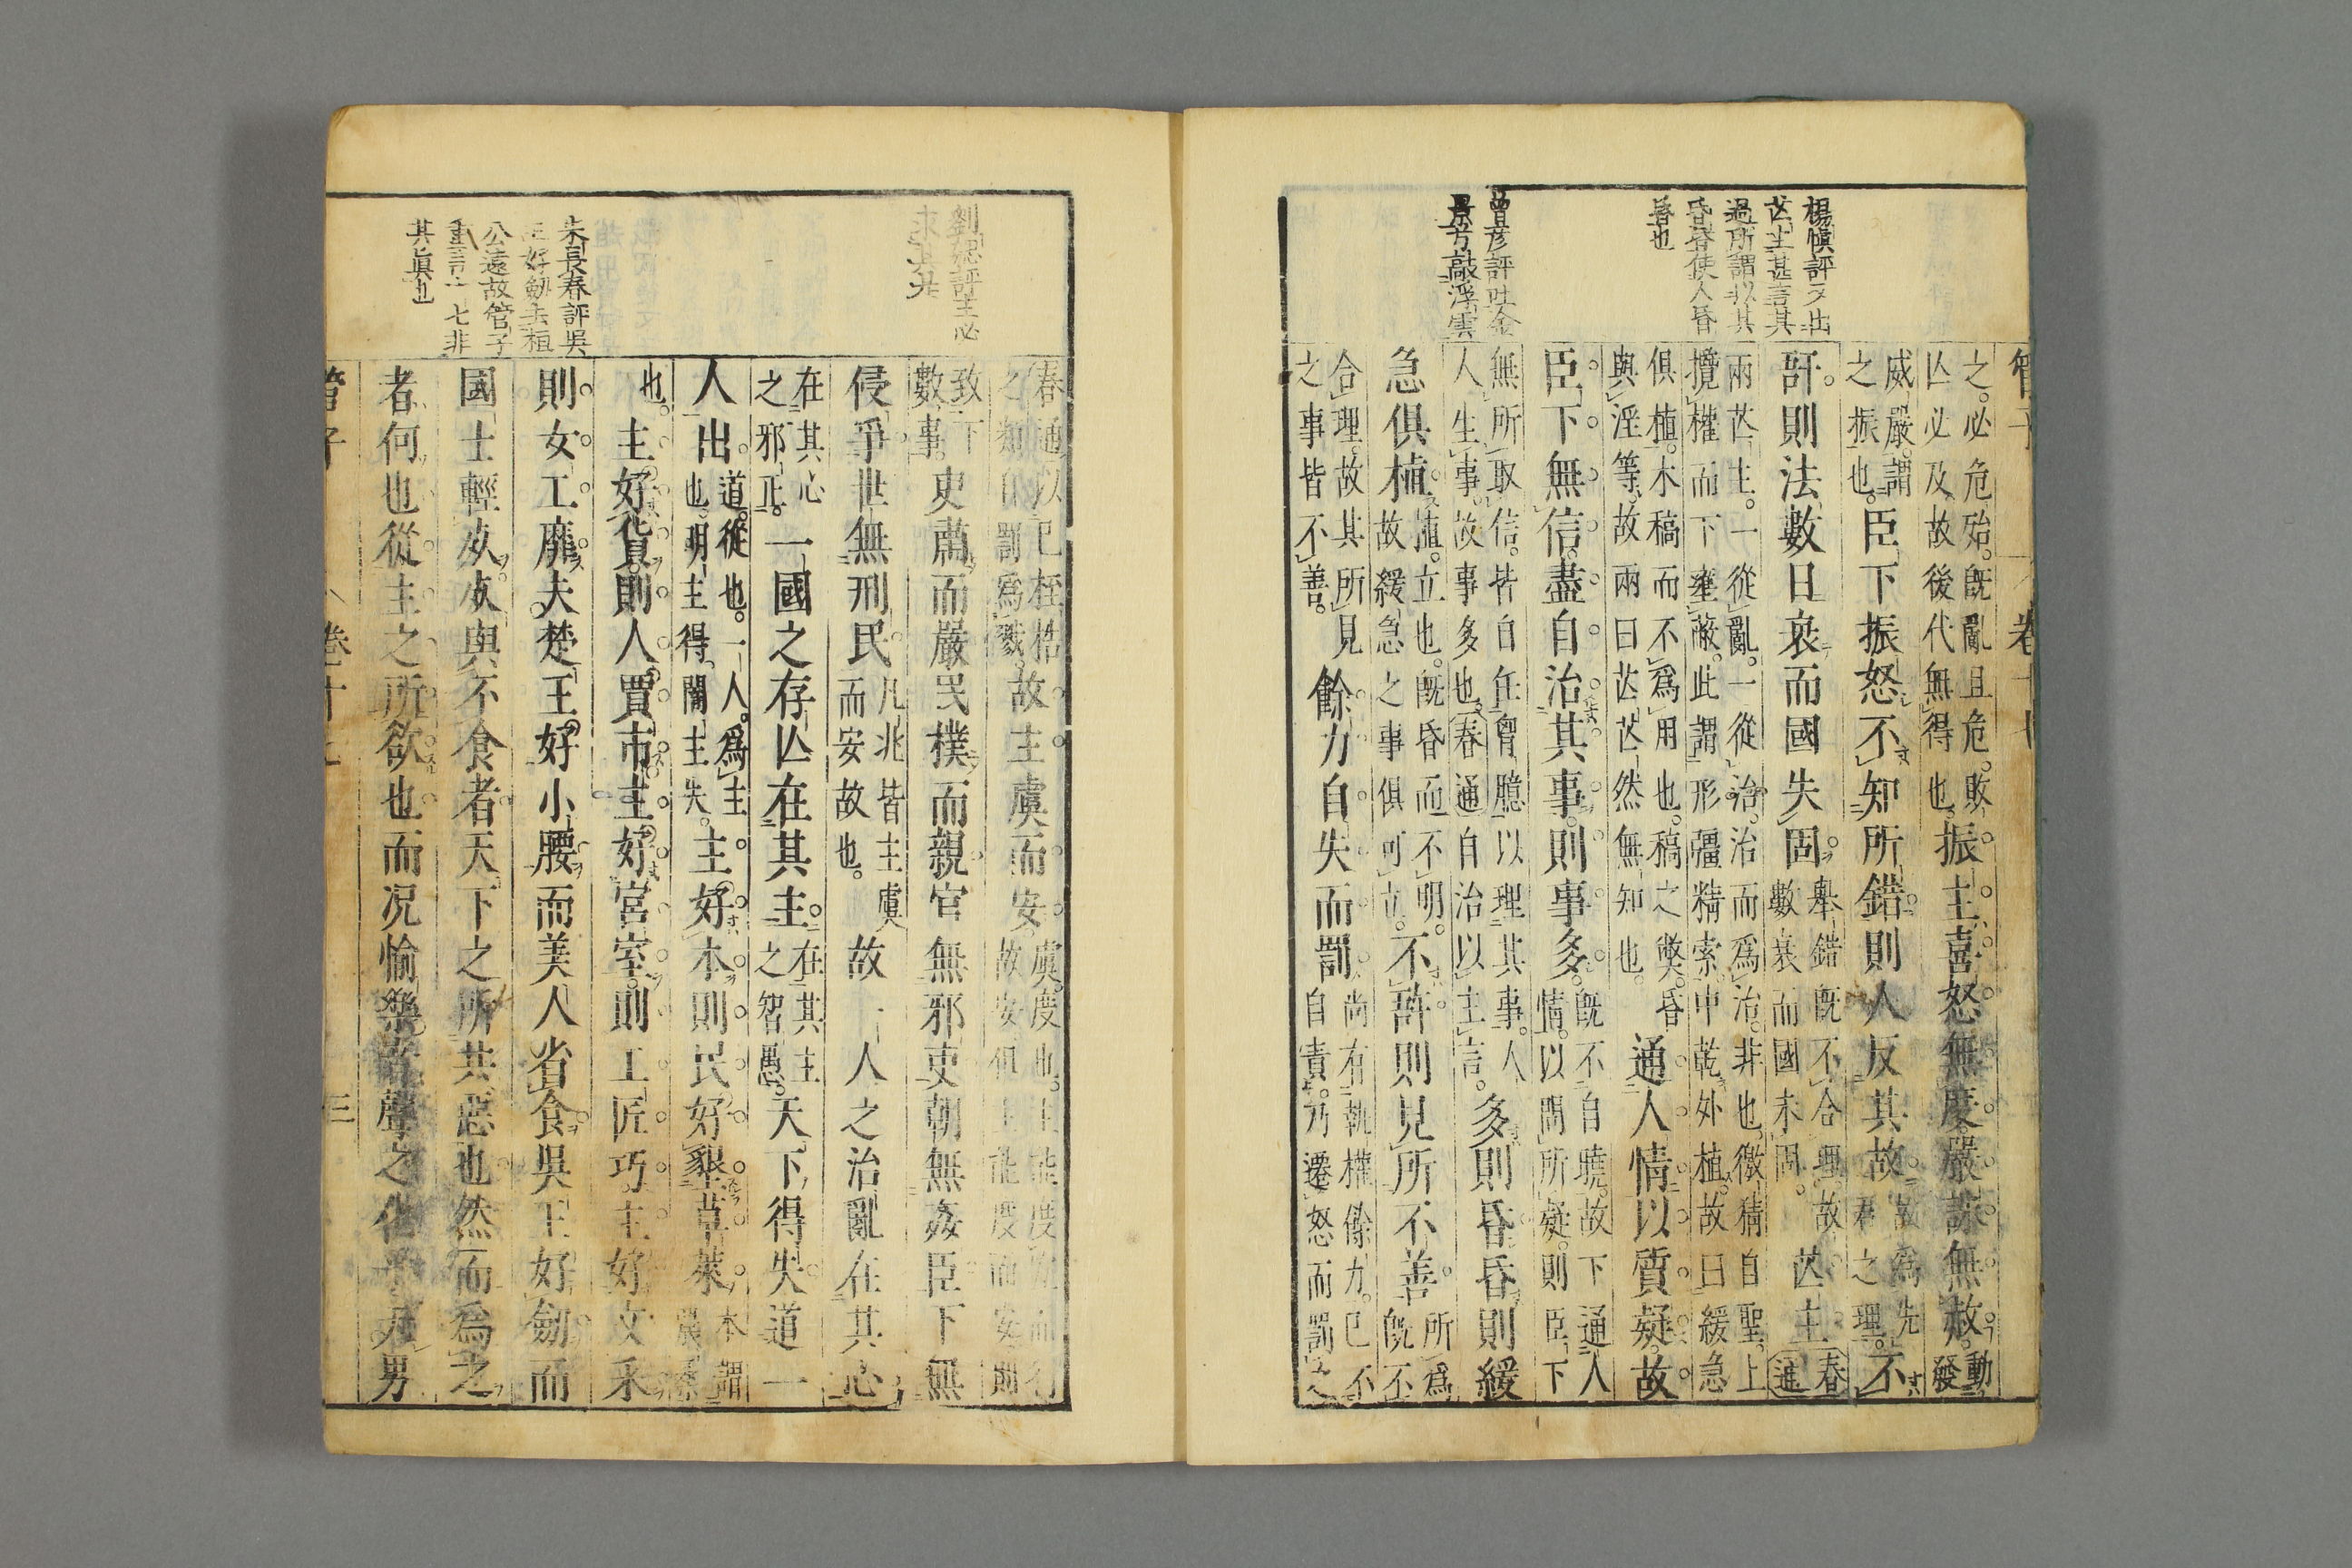 管子
卷十七
楊慎評又出
芒主甚言其
過所謂以其
昏昏使人昏
昏也
曾彥評吐金
景芳敲浮雲
之必危殆既亂且危敗
亾必及故後代無得也振主喜怒無度嚴誅無赦動發
威嚴謂
之振也臣下振怒不知所錯則人反其故
故爲先
君之理不
訝則法數日衰而國失固
舉錯既不合理故
數衰而國未固芒主春通
兩芒主一從亂一從治治而爲治非也徵精自聖上
攬權而下壅蔽此謂形彊精索中乾外植故曰緩急
俱植木稿而不爲用也稿之獘昏
與淫等故兩曰芒芒然無知也通人情以質疑故
臣下無信盡自治其事則事多
既不自曉故下通人
情以問所疑則臣下
無所取信皆自任曾臆以理其事人
人生事故事多也春通自治以主言多則昏昏則緩
急俱植
植立也既昏而不明
故緩急之事俱可立不許則見所不善
所爲
既不
合理故其所見
之事皆不善餘力自失而罰
尚有執權餘力已不
自責乃遷怒而罰之
劉恕評主必
求其共
朱長春評吳
王好劒去桓
公遠故管子
七非
其眞也
春通以已桎梏
之類自罰爲戮故主虞而安
虞度也主能度宜而行
故安但主能度而安則
致下
數事吏肅而嚴民樸而親官無邪吏朝無姦臣下無
侵爭世無刑民
凡兆皆主虞
而安故也故一人之治亂在其心
在其心
之邪正一國之存亾在其主
在其主
之智愚天下得失道一
人出
道從也一人爲主
也明主得闇主失主好本則民好墾草萊
本謂
農桑
也主好貨則人賈市主好宮室則工匠巧主好文采
則女工靡夫楚王好小腰而美人省食吳王好劒而
國士輕死死與不食者天下之所共惡也然而爲之
者何也從主之所欲也而况愉樂音聲之化乎夫男
管子
卷十七
三